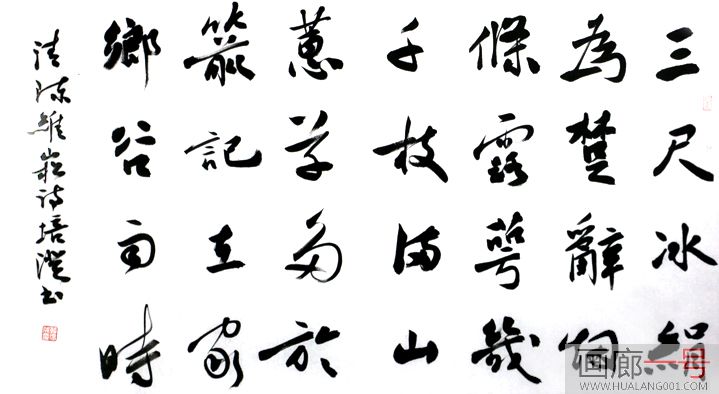 三尺冰絹
為楚辭
條露萼幾
千枝滿山
蕙草多於
箭記在家
鄉谷雨時
清陳維崧詩培澄書
画廊一号
WWW.HUALANG001.COM